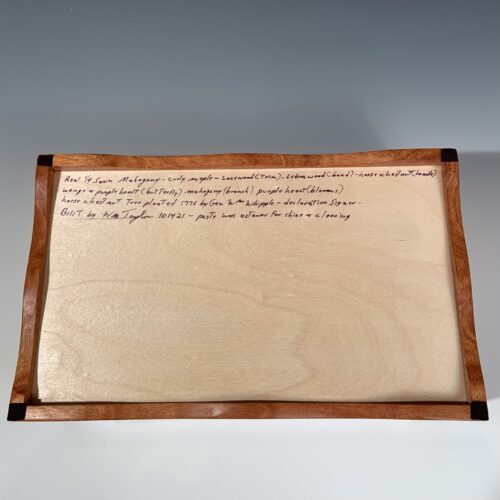 Real 1/4 Sawn Mahogany - curly maple - basswood (Trim) - Zebra wood (band) - horse chestnut (handle)
wenge & purple heart (butterfly) mahogany (branch) purple heart (blooms)
horse chestnut Tree planted 1776 by Gen Wm Whipple - declaration Signer.
by Wm Taylor 101421 - paste wax exterior for shine & cleaning